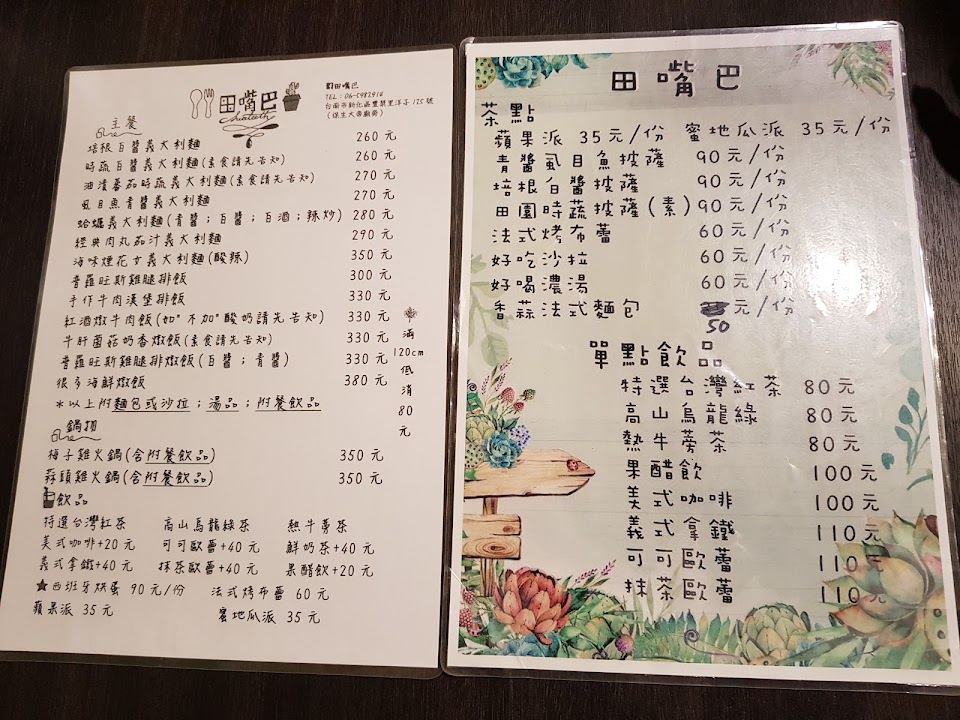 田嘴巴
廚田嘴巴
TEL:06-5982914
台南市新化區豐榮里洋子125號
(保生大帝廟旁)
主餐
培根白醬義大利麵 260元
時蔬白醬義大利麵(素食請先告知) 260元
油漬蕃茄時蔬義大利麵(素食請先告知) 270元
虱目魚青醬義大利麵 270元
蛤蠣義大利麵(青醬;白醬;白酒;辣炒) 280元
經典肉丸茄汁義大利麵 290元
海味煙花女義大利麵(酸辣) 350元
普羅旺斯雞腿排飯 300元
手作牛肉漢堡排飯 330元
紅酒燉牛肉飯(如"不加"酸奶請先告知) 330元
牛肝菌菇奶香燉飯(素食請先告知) 330元
普羅旺斯雞腿排燉飯(白醬;青醬) 330元
很多海鮮燉飯 380元
*以上附麵包或沙拉;湯品;附餐飲品
滿120cm低消80元
鍋物
梅子雞火鍋(含附餐飲品) 350元
蒜頭雞火鍋(含附餐飲品) 350元
飲品
特選台灣紅茶 高山烏龍綠茶 熱牛蒡茶
美式咖啡+20元 可可歐蕾+40元 鮮奶茶+40元
義式拿鐵+40元 抹茶歐蕾+40元 果醋飲+20元
★西班牙烘蛋 90元/份 法式烤布蕾 60元
蘋果派 35元 蜜地瓜派 35元
田嘴巴
茶點
蘋果派 35元/份 蜜地瓜派 35元/份
青醬虱目魚披薩 90元/份
培根白醬披薩 90元/份
田園時蔬披薩(素) 90元/份
法式烤布蕾 60元/份
好吃沙拉 60元/份
好喝濃湯 60元/份
香蒜法式麵包 50元/份
單點飲品
特選台灣紅茶 80元
高山烏龍綠 80元
熱牛蒡茶 80元
果醋飲 100元
美式咖啡 100元
義式拿鐵 110元
可可歐蕾 110元
抹茶歐蕾 110元